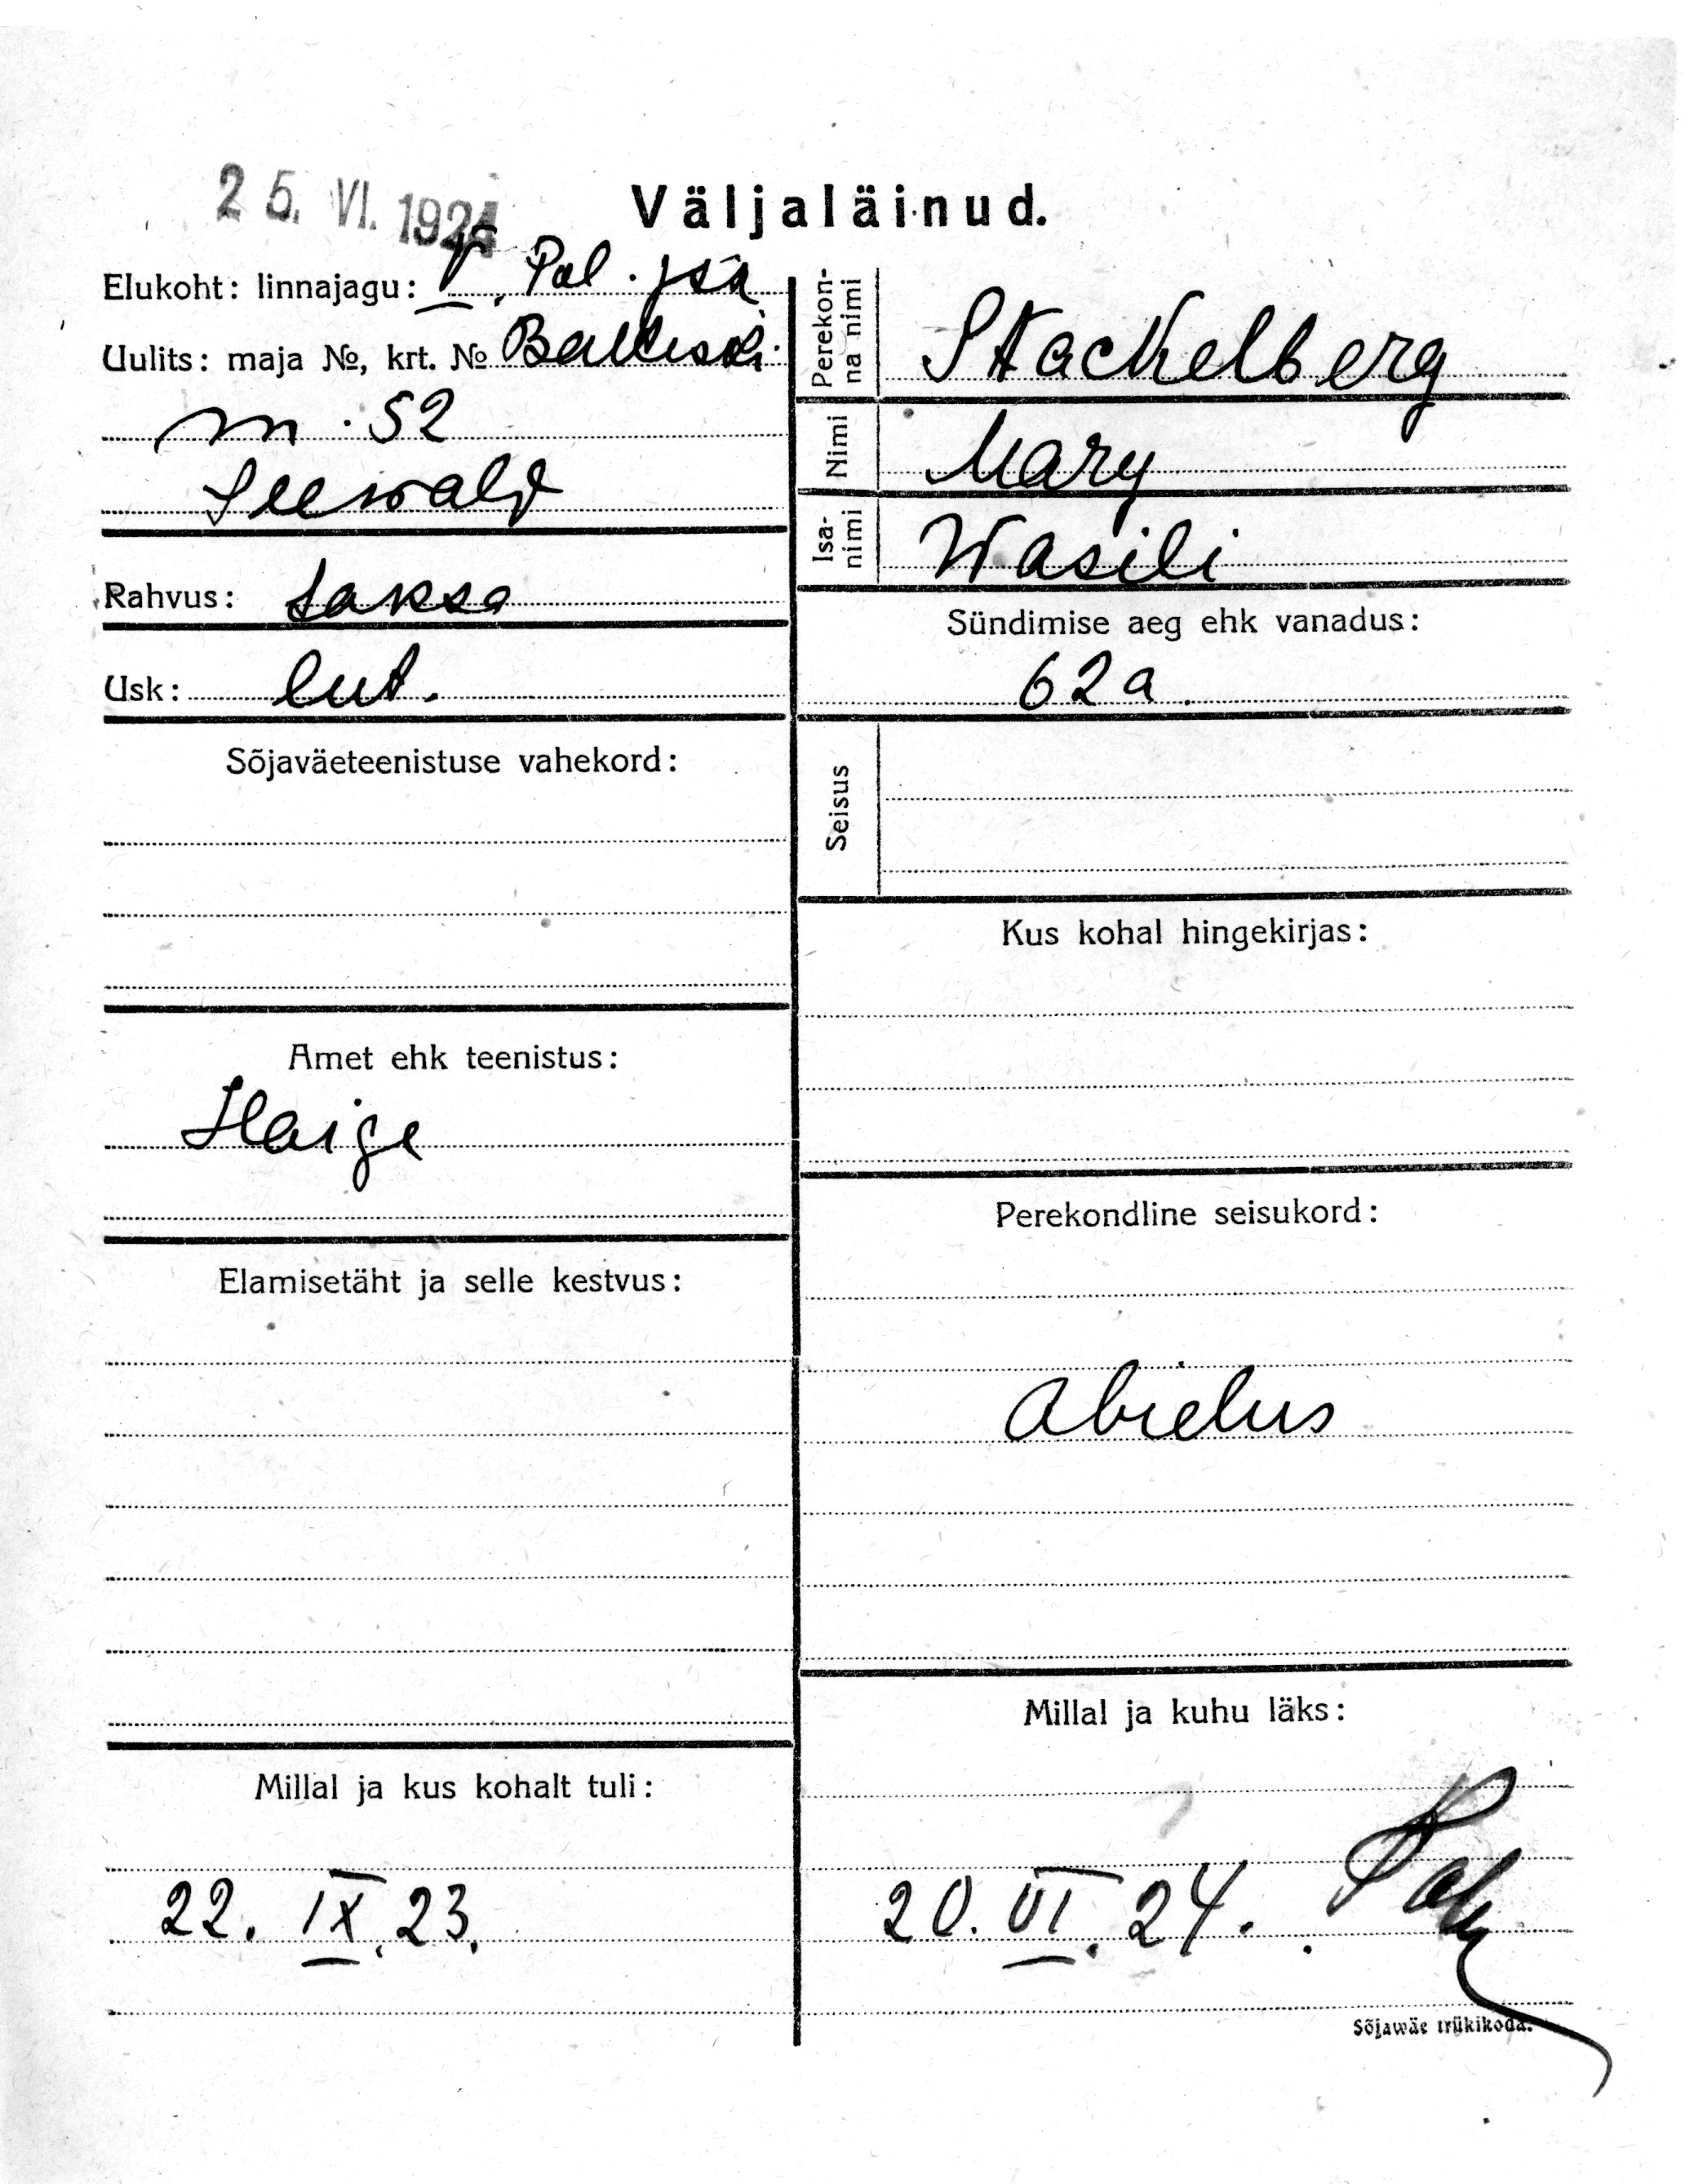 25. VI. 1924
Väljaläinud.
Elukoht: linnajagu: V. Pol. jsk
Uulits: maja №, krt. № Baltiski
m. 52
Seewald
Rahvus: Saksa
Usk: lut.
Sõjaväeteenistuse vahekord:
Amet ehk teenistus:
Haige
Elamisetäht ja selle kestvus:
Millal ja kus kohalt tuli:
22. IX. 23.
Perekon-
na nimi
Stackelberg
Nimi
Mary
Isa-
nimi
Wasili
Sündimise aeg ehk vanadus:
62 a.
Seisus
Kus kohal hingekirjas:
Perekondline seisukord:
Abielus
Millal ja kuhu läks:
20. VI. 24.
Sõjawäe trükikoda.